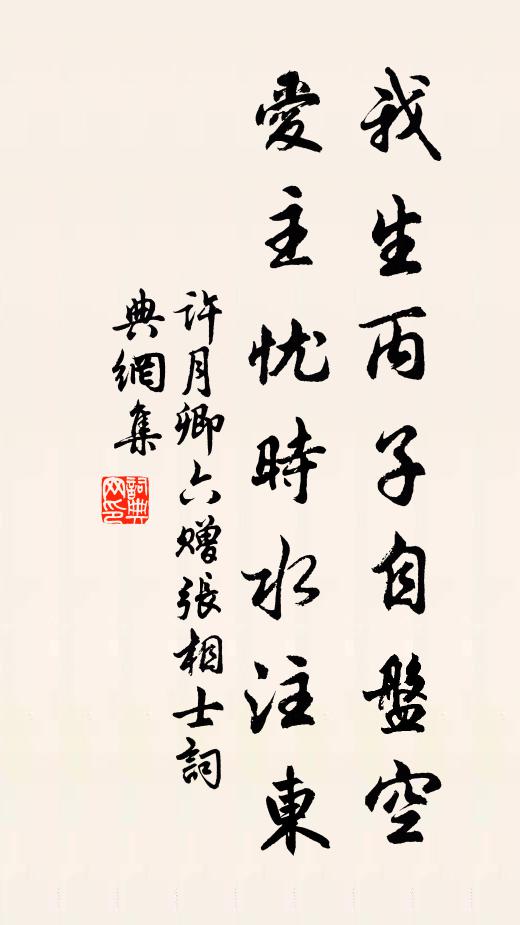 我生丙子自盤空
愛主忧時水注東
許月卿六赠張相士詞
典網集
詞典
网印